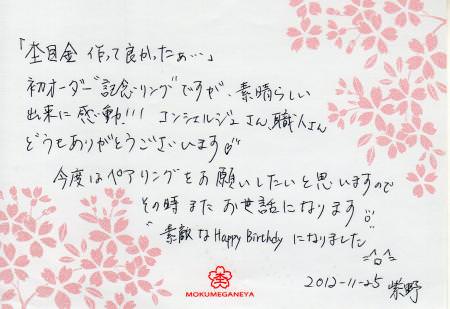 「杢目金 作って良かったぁ…」
初オーダー"記念リング"ですが、素晴らしい
出来に感動!!! コンシェルジュさん、職人さん
どうもありがとうございます
今度はペアリングをお願いしたいと思いますので
その時またお世話になります
"素敵なHappy Birthdyになりました
2012-11-25 紫野
MOKUMEGANEYA